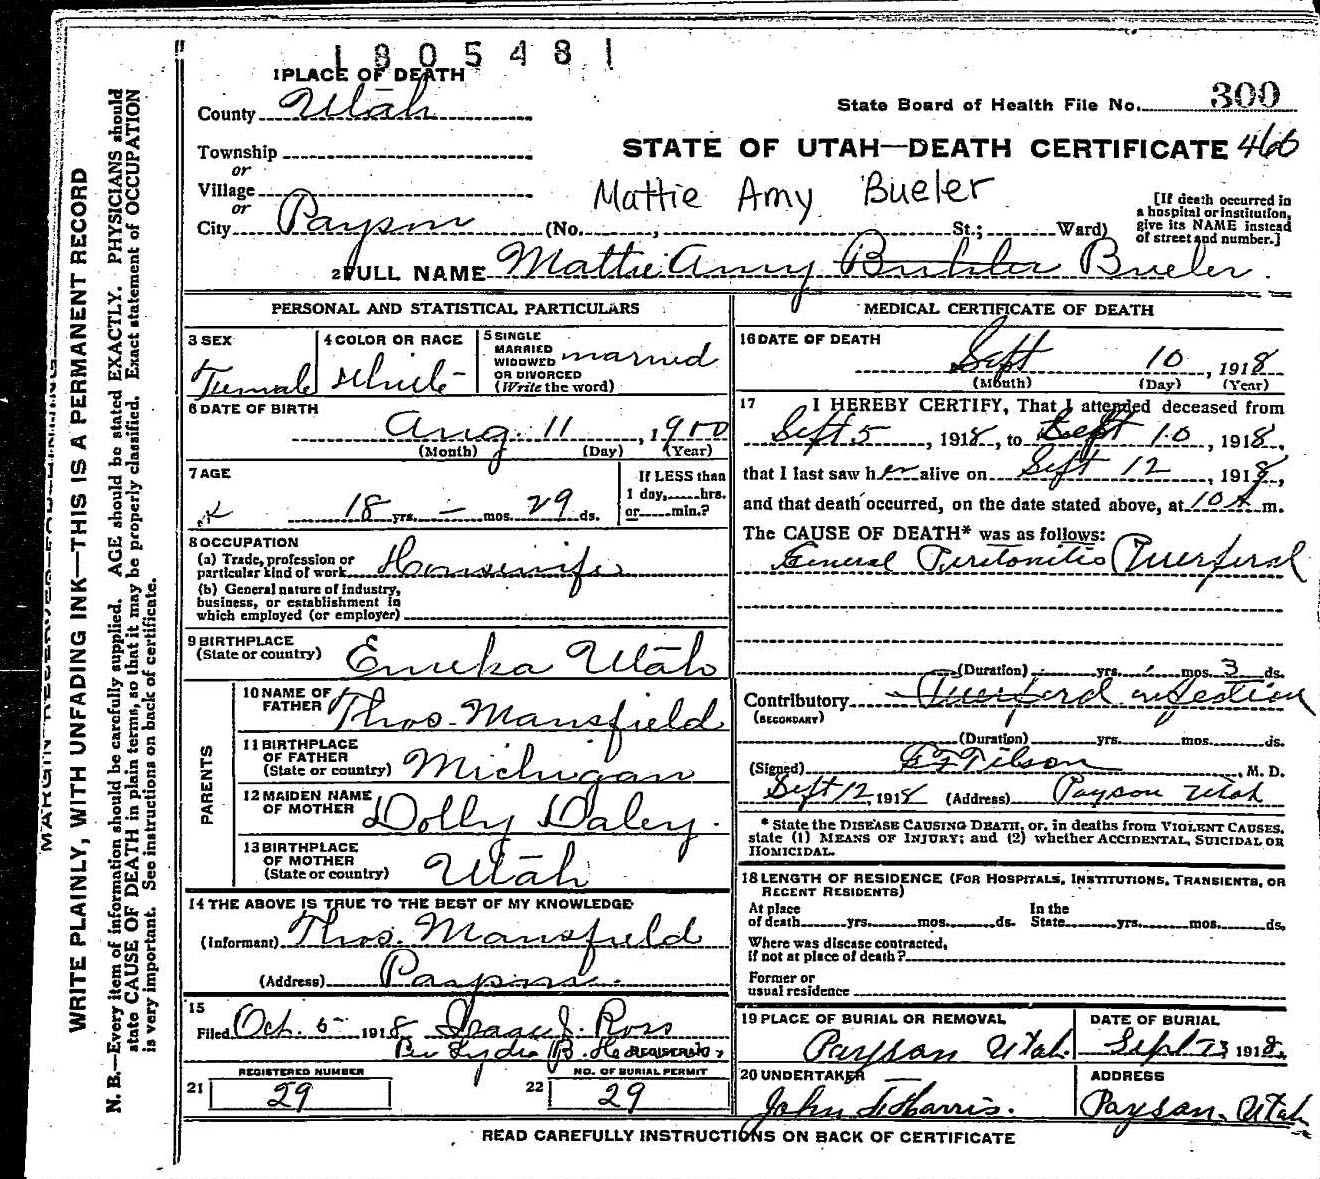 1805481
1 PLACE OF DEATH
County Utah
State Board of Health File No. 300
Township
or
STATE OF UTAH—DEATH CERTIFICATE 466
Village
or
Mattie Amy Bueler
City Payson (No. , St.; Ward)
[If death occurred in
a hospital or institution,
give its NAME instead
of street and number.]
2 FULL NAME Mattie Amy Buhler Bueler.
PERSONAL AND STATISTICAL PARTICULARS
3 SEX
Female
4 COLOR OR RACE
White
5 SINGLE
MARRIED
WIDOWED
OR DIVORCED
(Write the word)
married
6 DATE OF BIRTH
Aug. 11, 1900
(Month) (Day) (Year)
7 AGE
18 yrs. — mos. 29 ds.
If LESS than
1 day, hrs.
or min.?
8 OCCUPATION
(a) Trade, profession or
particular kind of work Housewife
(b) General nature of Industry,
business, or establishment in
which employed (or employer)
9 BIRTHPLACE
(State or country) Eureka Utah
PARENTS
10 NAME OF
FATHER Thos. Mansfield
11 BIRTHPLACE
OF FATHER
(State or country) Michigan
12 MAIDEN NAME
OF MOTHER Dolly Daley.
13 BIRTHPLACE
OF MOTHER
(State or country) Utah
14 THE ABOVE IS TRUE TO THE BEST OF MY KNOWLEDGE
(Informant) Thos. Mansfield
(Address) Payson
15
Filed Oct. 5- 1918 Isaac J. Ross
Per Lydia B. REGISTRAR
REGISTERED NUMBER
21 29
NO. OF BURIAL PERMIT
22 29
MEDICAL CERTIFICATE OF DEATH
16 DATE OF DEATH
Sept 10, 1918
(Month) (Day) (Year)
17 I HEREBY CERTIFY, That I attended deceased from
Sept 5, 1918, to Sept 10, 1918,
that I last saw her alive on Sept 12, 1918,
and that death occurred, on the date stated above, at 10 A m.
The CAUSE OF DEATH* was as follows:
General Peritonitis Puerperal
(Duration) yrs. mos. 3 ds.
Contributory Puerperal infection
(SECONDARY)
(Duration) yrs. mos. ds.
(Signed) Tilson, M. D.
Sept 12, 1918 (Address) Payson Utah
* State the DISEASE CAUSING DEATH, or, in deaths from VIOLENT CAUSES,
state (1) MEANS OF INJURY; and (2) whether ACCIDENTAL, SUICIDAL OR
HOMICIDAL.
18 LENGTH OF RESIDENCE (FOR HOSPITALS, INSTITUTIONS, TRANSIENTS, OR
RECENT RESIDENTS)
At place
of death yrs. mos. ds.
In the
State yrs. mos. ds.
Where was disease contracted,
if not at place of death?
Former or
usual residence
19 PLACE OF BURIAL OR REMOVAL
Payson Utah.
DATE OF BURIAL
Sept 13 1918.
20 UNDERTAKER
John Harris.
ADDRESS
Payson. Utah
READ CAREFULLY INSTRUCTIONS ON BACK OF CERTIFICATE
MARGIN RESERVED FOR BINDING
WRITE PLAINLY, WITH UNFADING INK—THIS IS A PERMANENT RECORD
N. B.—Every item of information should be carefully supplied. AGE should be stated EXACTLY. PHYSICIANS should
state CAUSE OF DEATH in plain terms, so that it may be properly classified. Exact statement of OCCUPATION
is very important. See instructions on back of certificate.